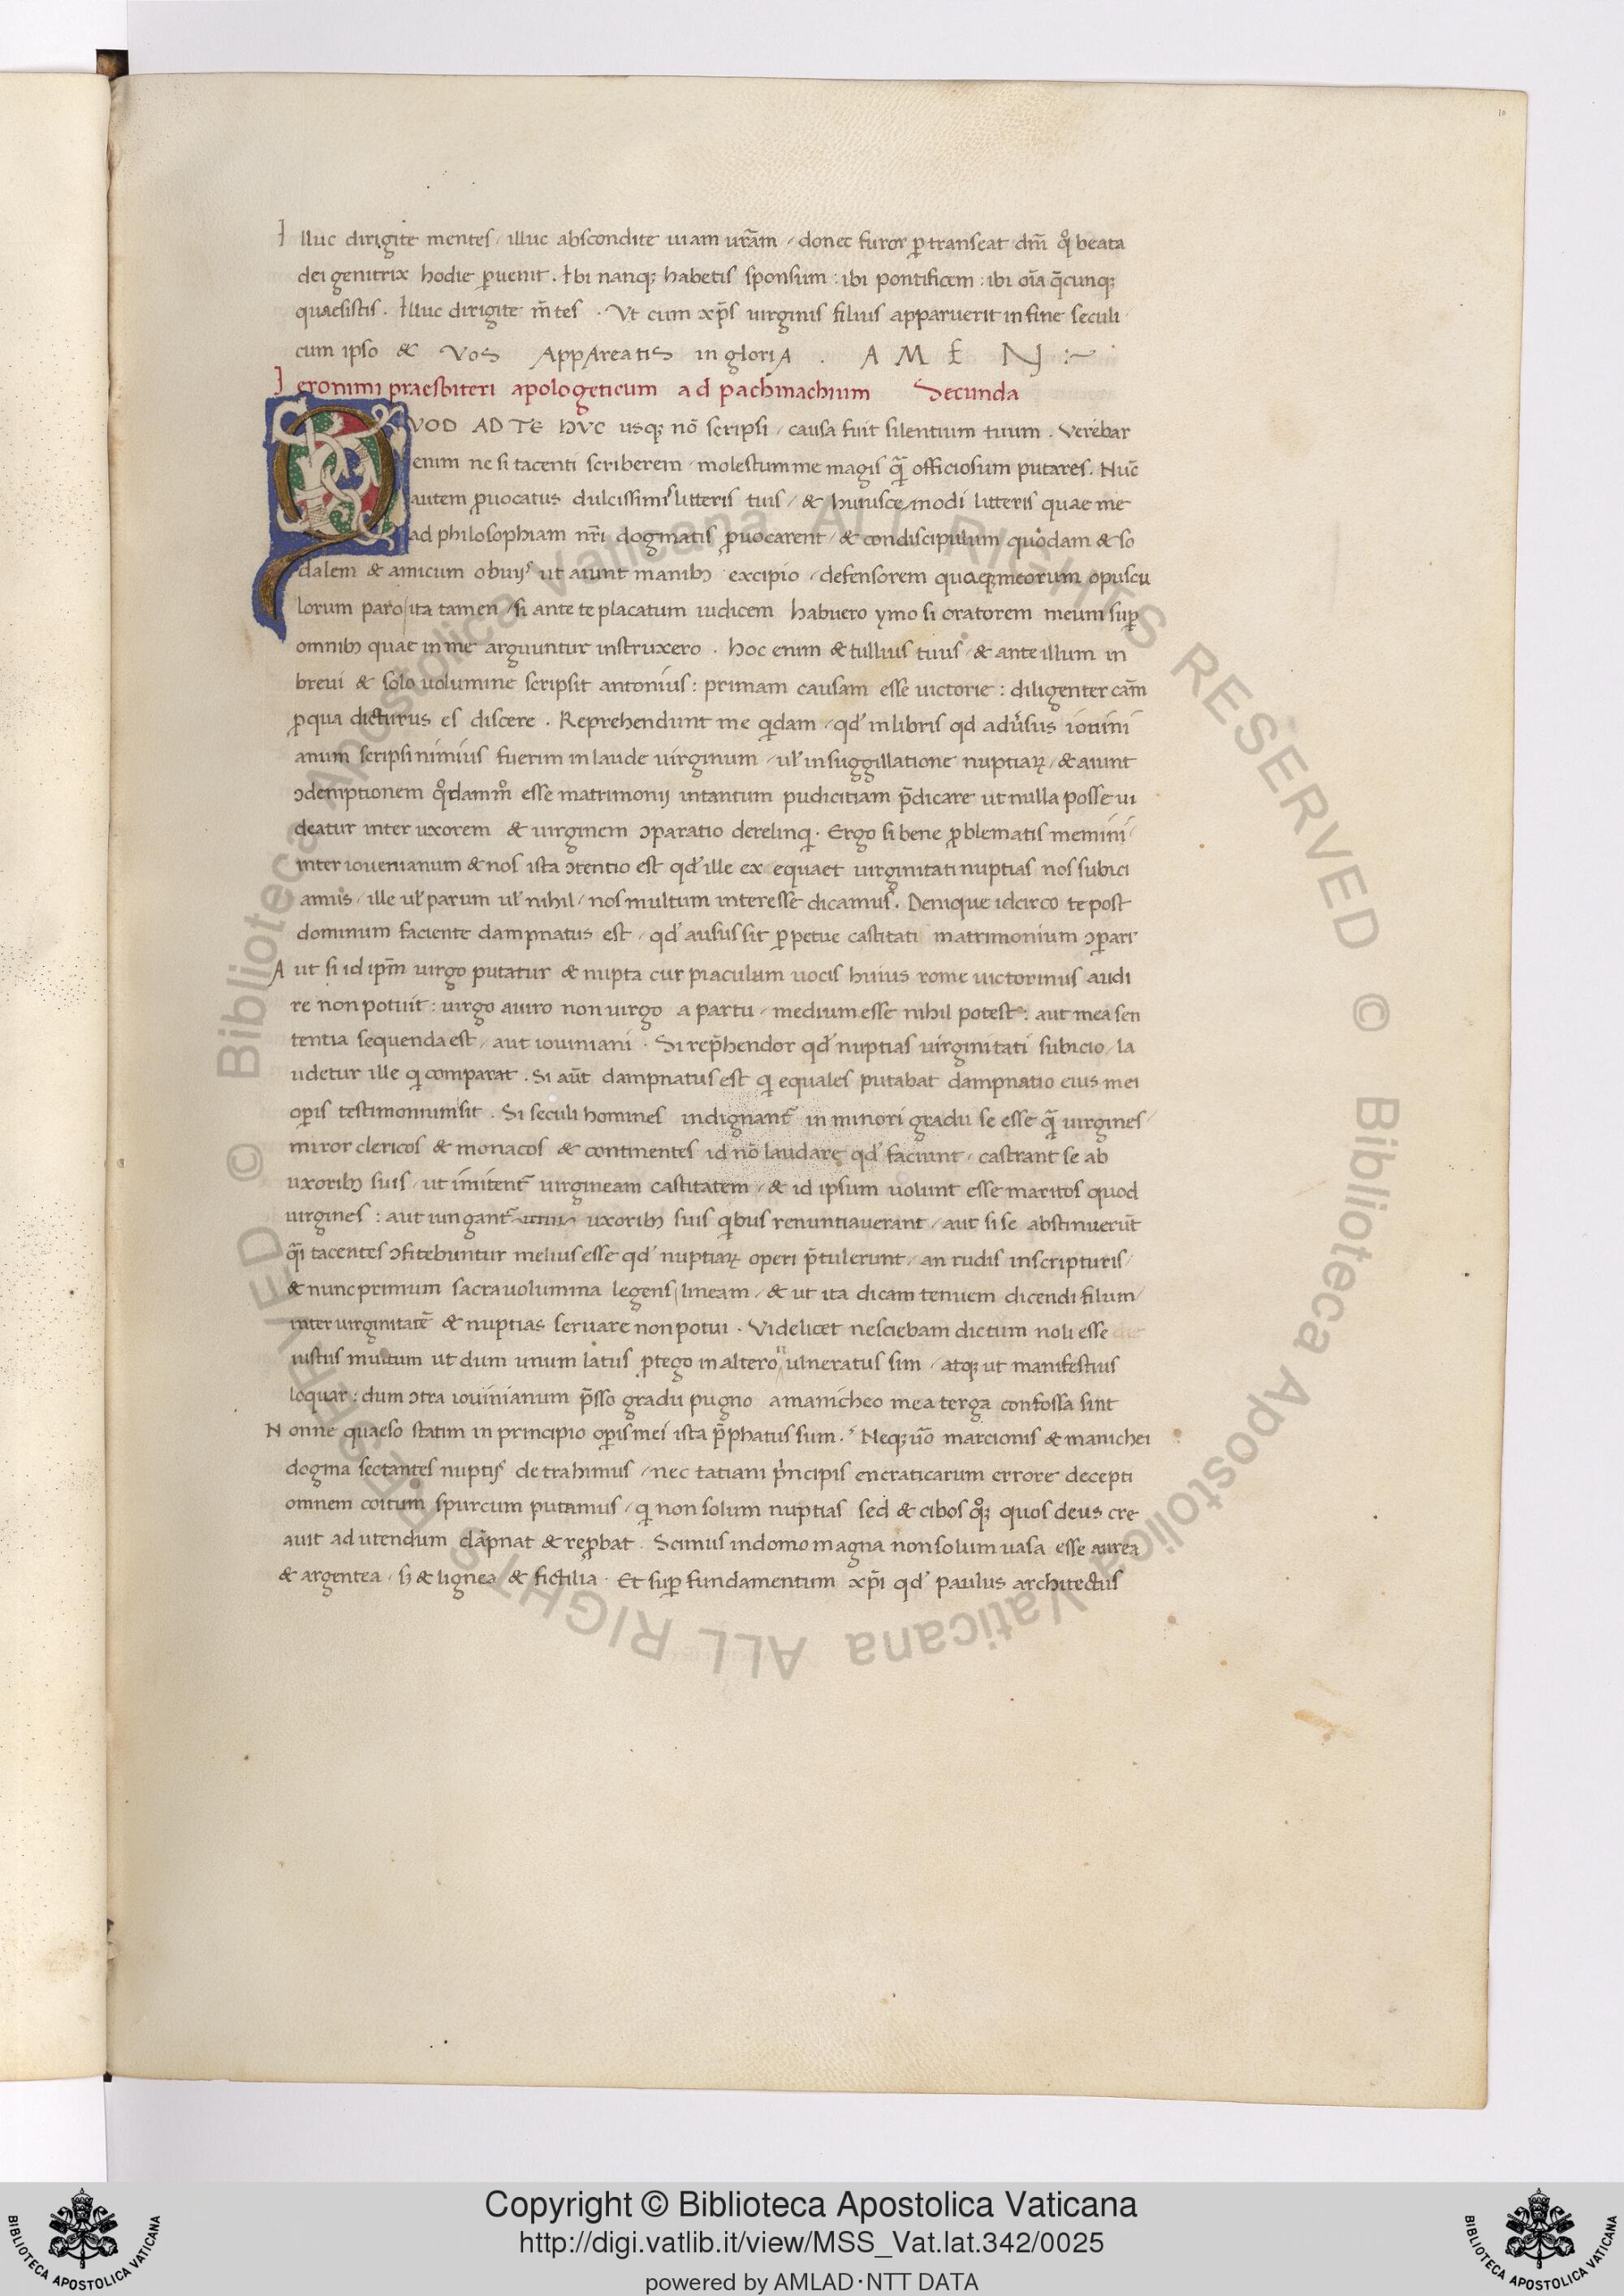 10
Illuc dirigite mentes / illuc abscondite uiam ur̃am / donec furor p̱transeat dñi qͦ beata
dei genitrix hodie p̱uenit . Ibi nanqꝫ habetis sponsum : ibi pontificem : ibi oĩa q̃cunqꝫ
quaesistis . Illuc dirigite m̃tes . Vt cum xp̃s uirginis filius apparuerit in fine seculi
cum ipso & Vos AppAreatis in gloriA . A M E N :~
Ieronimi praesbiteri apologeticum ad pachmachium Secunda
QVOD AD TE HVC usqꝫ nõ scripsi / causa fuit silentium tuum . Verebar
enim ne si tacenti scriberem / molestum me magis q̃ officiosum putares . Nuc̃
autem ꝓuocatus dulcissimis litteris tuis / & huiuscemodi litteris quae me
ad philosophiam nr̃i dogmatis ꝓuocarent / & condiscipulum quodam & so
dalem & amicum obuijs ut aiunt manibꝫ excipio / defensorem quoqꝫ meorum opuscu
lorum paro / ita tamen / si ante te placatum iudicem habuero ymo si oratorem meum suꝑ
omnibꝫ quae in me arguuntur instruxero . hoc enim & tullius tuus / & ante illum in
breui & solo uolumine scripsit antonius : primam causam esse uictorie : diligenter cãm
ꝓ qua dicturus es discere . Reprehendunt me qͥdam / qd' in libris qd aduͥsus iouini
anum scripsi nimius fuerim in laude uirginum / ul' in suggillatione nuptiaꝝ / & aiunt
ꝯdemptionem qͦdammͦ esse matrimonij intantum pudicitiam p̃dicare ut nulla posse ui
deatur inter uxorem & uirginem ꝯparatio derelinqͥ . Ergo si bene ꝓblematis memini /
inter iouenianum & nos ista ꝯtentio est qd' ille ex equaet uirginitati nuptias nos subici
amus / ille ul' parum ul' nihil / nos multum interesse dicamus . Denique idcirco te post
dominum faciente dampnatus est / qd' ausus sit ꝑpetue castitati matrimonium ꝯpari
Aut si id ip̃m uirgo putatur & nupta cur piaculum uocis huius rome uictorinus audi
re non potuit : uirgo a uiro non uirgo a partu / medium esse nihil potest : aut mea sen
tentia sequenda est / aut iouiniani . Si rep̃hendor qd' nuptias uirginitati subicio / la
udetur ille qͥ comparat . Si aut̃ dampnatus est qͥ equales putabat dampnatio eius mei
oꝑis testimonium sit . Si seculi homines indignant᷑ in minori gradu se esse q̃ uirgines /
miror clericos & monacos & continentes id nõ laudare qd' faciunt / castrant se ab
uxoribꝫ suis / ut imitent᷑ uirgineam castitatem / & id ipsum uolunt esse maritos quod
uirgines : aut iungant᷑ uxoribꝫ suis qͥbus renuntiauerant / aut si se abstinuerũt
qͣi tacentes ꝯfitebuntur melius esse qd' nuptiaꝝ operi p̃tulerunt / an rudis in scripturis /
& nunc primum sacra uolumina legens / lineam / & ut ita dicam tenuem dicendi filum /
inter uirginitatẽ & nuptias seruare non potui . Videlicet nesciebam dictum noli esse
iustus multum ut dum unum latus ꝓtego in altero uulneratus sim / atqꝫ ut manifestius
loquar : dum ꝯtra iouinianum p̃sso gradu pugno a manicheo mea terga confossa sint
Nonne quaeso statim in principio oꝑis mei ista p̃phatus sum . Neqꝫ uͦo marcionis & manichei
dogma sectantes nuptijs detrahimus / nec tatiani pͥncipis encraticarum errore decepti
omnem coitum spurcum putamus / qͥ non solum nuptias sed & cibos qͦqꝫ quos deus cre
auit ad utendum dãpnat & reꝓbat . Scimus in domo magna non solum uasa esse aurea
& argentea / sꝫ & lignea & fictilia . Et suꝑ fundamentum xp̃i qd' paulus architectus
© Biblioteca Apostolica Vaticana ALL RIGHTS RESERVED © Biblioteca Apostolica Vaticana ALL RIGHTS RESERVED
Copyright © Biblioteca Apostolica Vaticana
http://digi.vatlib.it/view/MSS_Vat.lat.342/0025
powered by AMLAD·NTT DATA
BIBLIOTECA APOSTOLICA VATICANA
BIBLIOTECA APOSTOLICA VATICANA